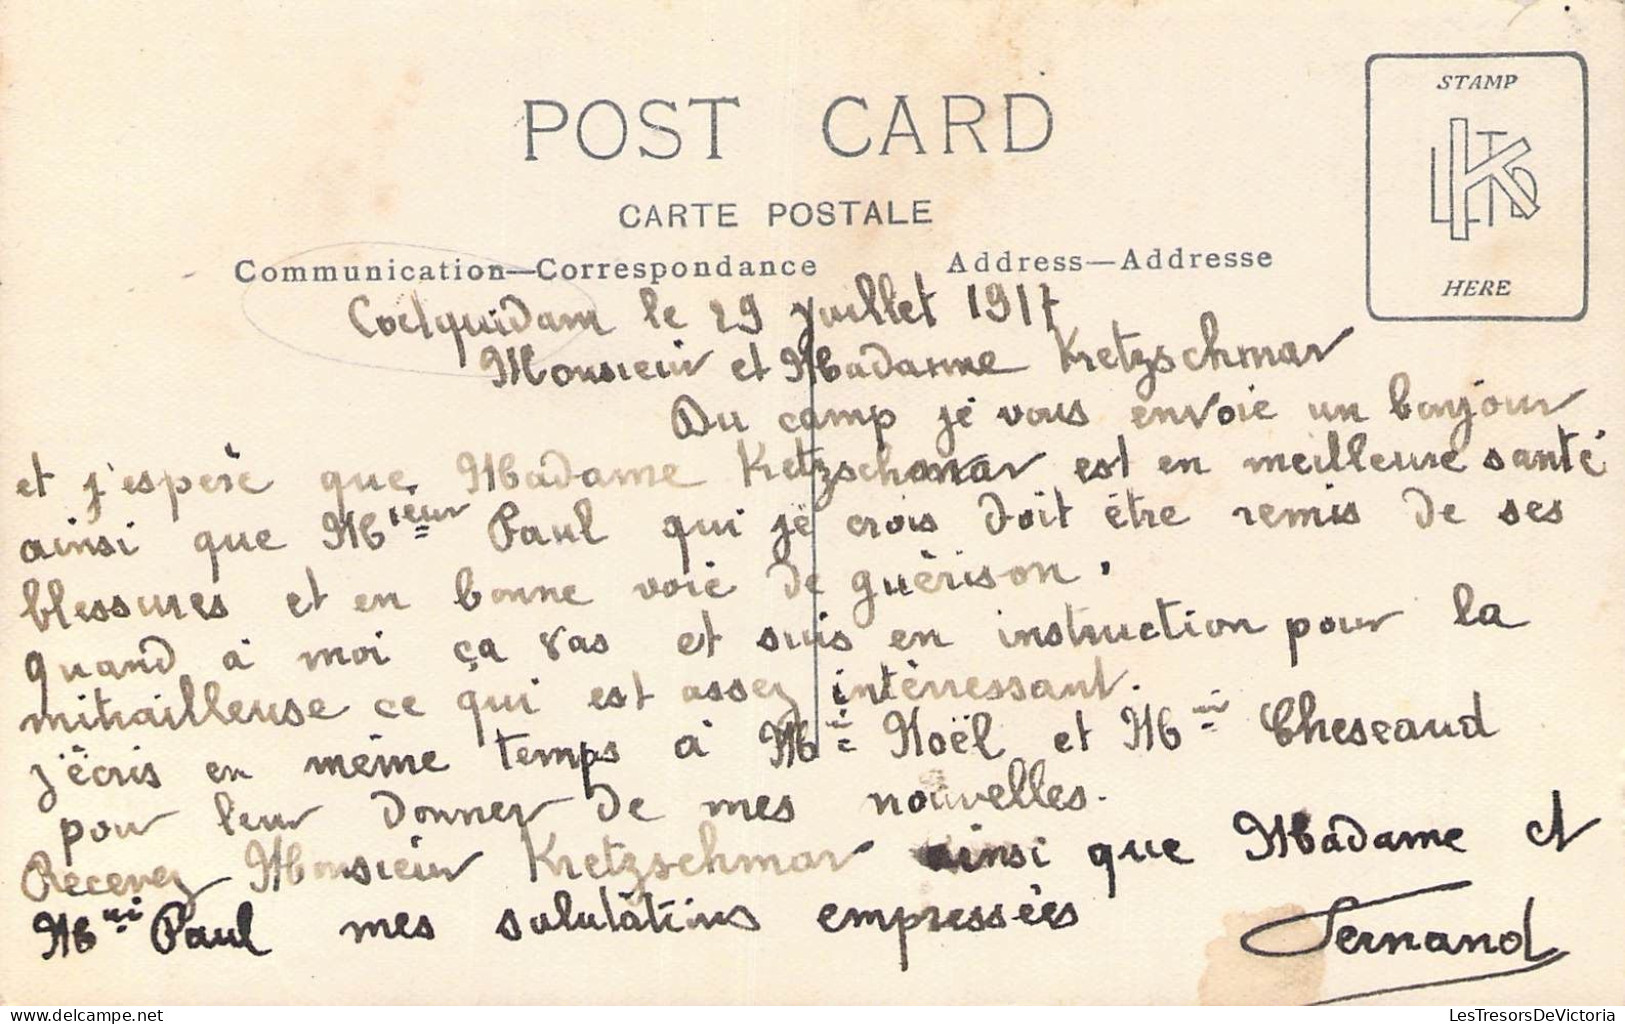 POST CARD
CARTE POSTALE
Communication—Correspondance
Address—Addresse
STAMP
LTD
K
HERE
Coëtquidam le 29 juillet 1917
Monsieur et Madame Kretzschmar
Du camp je vous envoie un bonjour
et j'espère que Madame Kretzschmar est en meilleure santé
ainsi que Mieur Paul qui je crois doit être remis de ses
blessures et en bonne voie de guèrison.
Quand à moi ça vas et suis en instruction pour la
mitrailleuse ce qui est assez intèrressant.
j'ècris en même temps à Me Noël et Mr Cheseaud
pour leur donner de mes nouvelles.
Recevez Monsieur Kretzschmar ainsi que Madame et
Mr Paul mes salutations empressèes
Fernand
LesTresorsDeVictoria